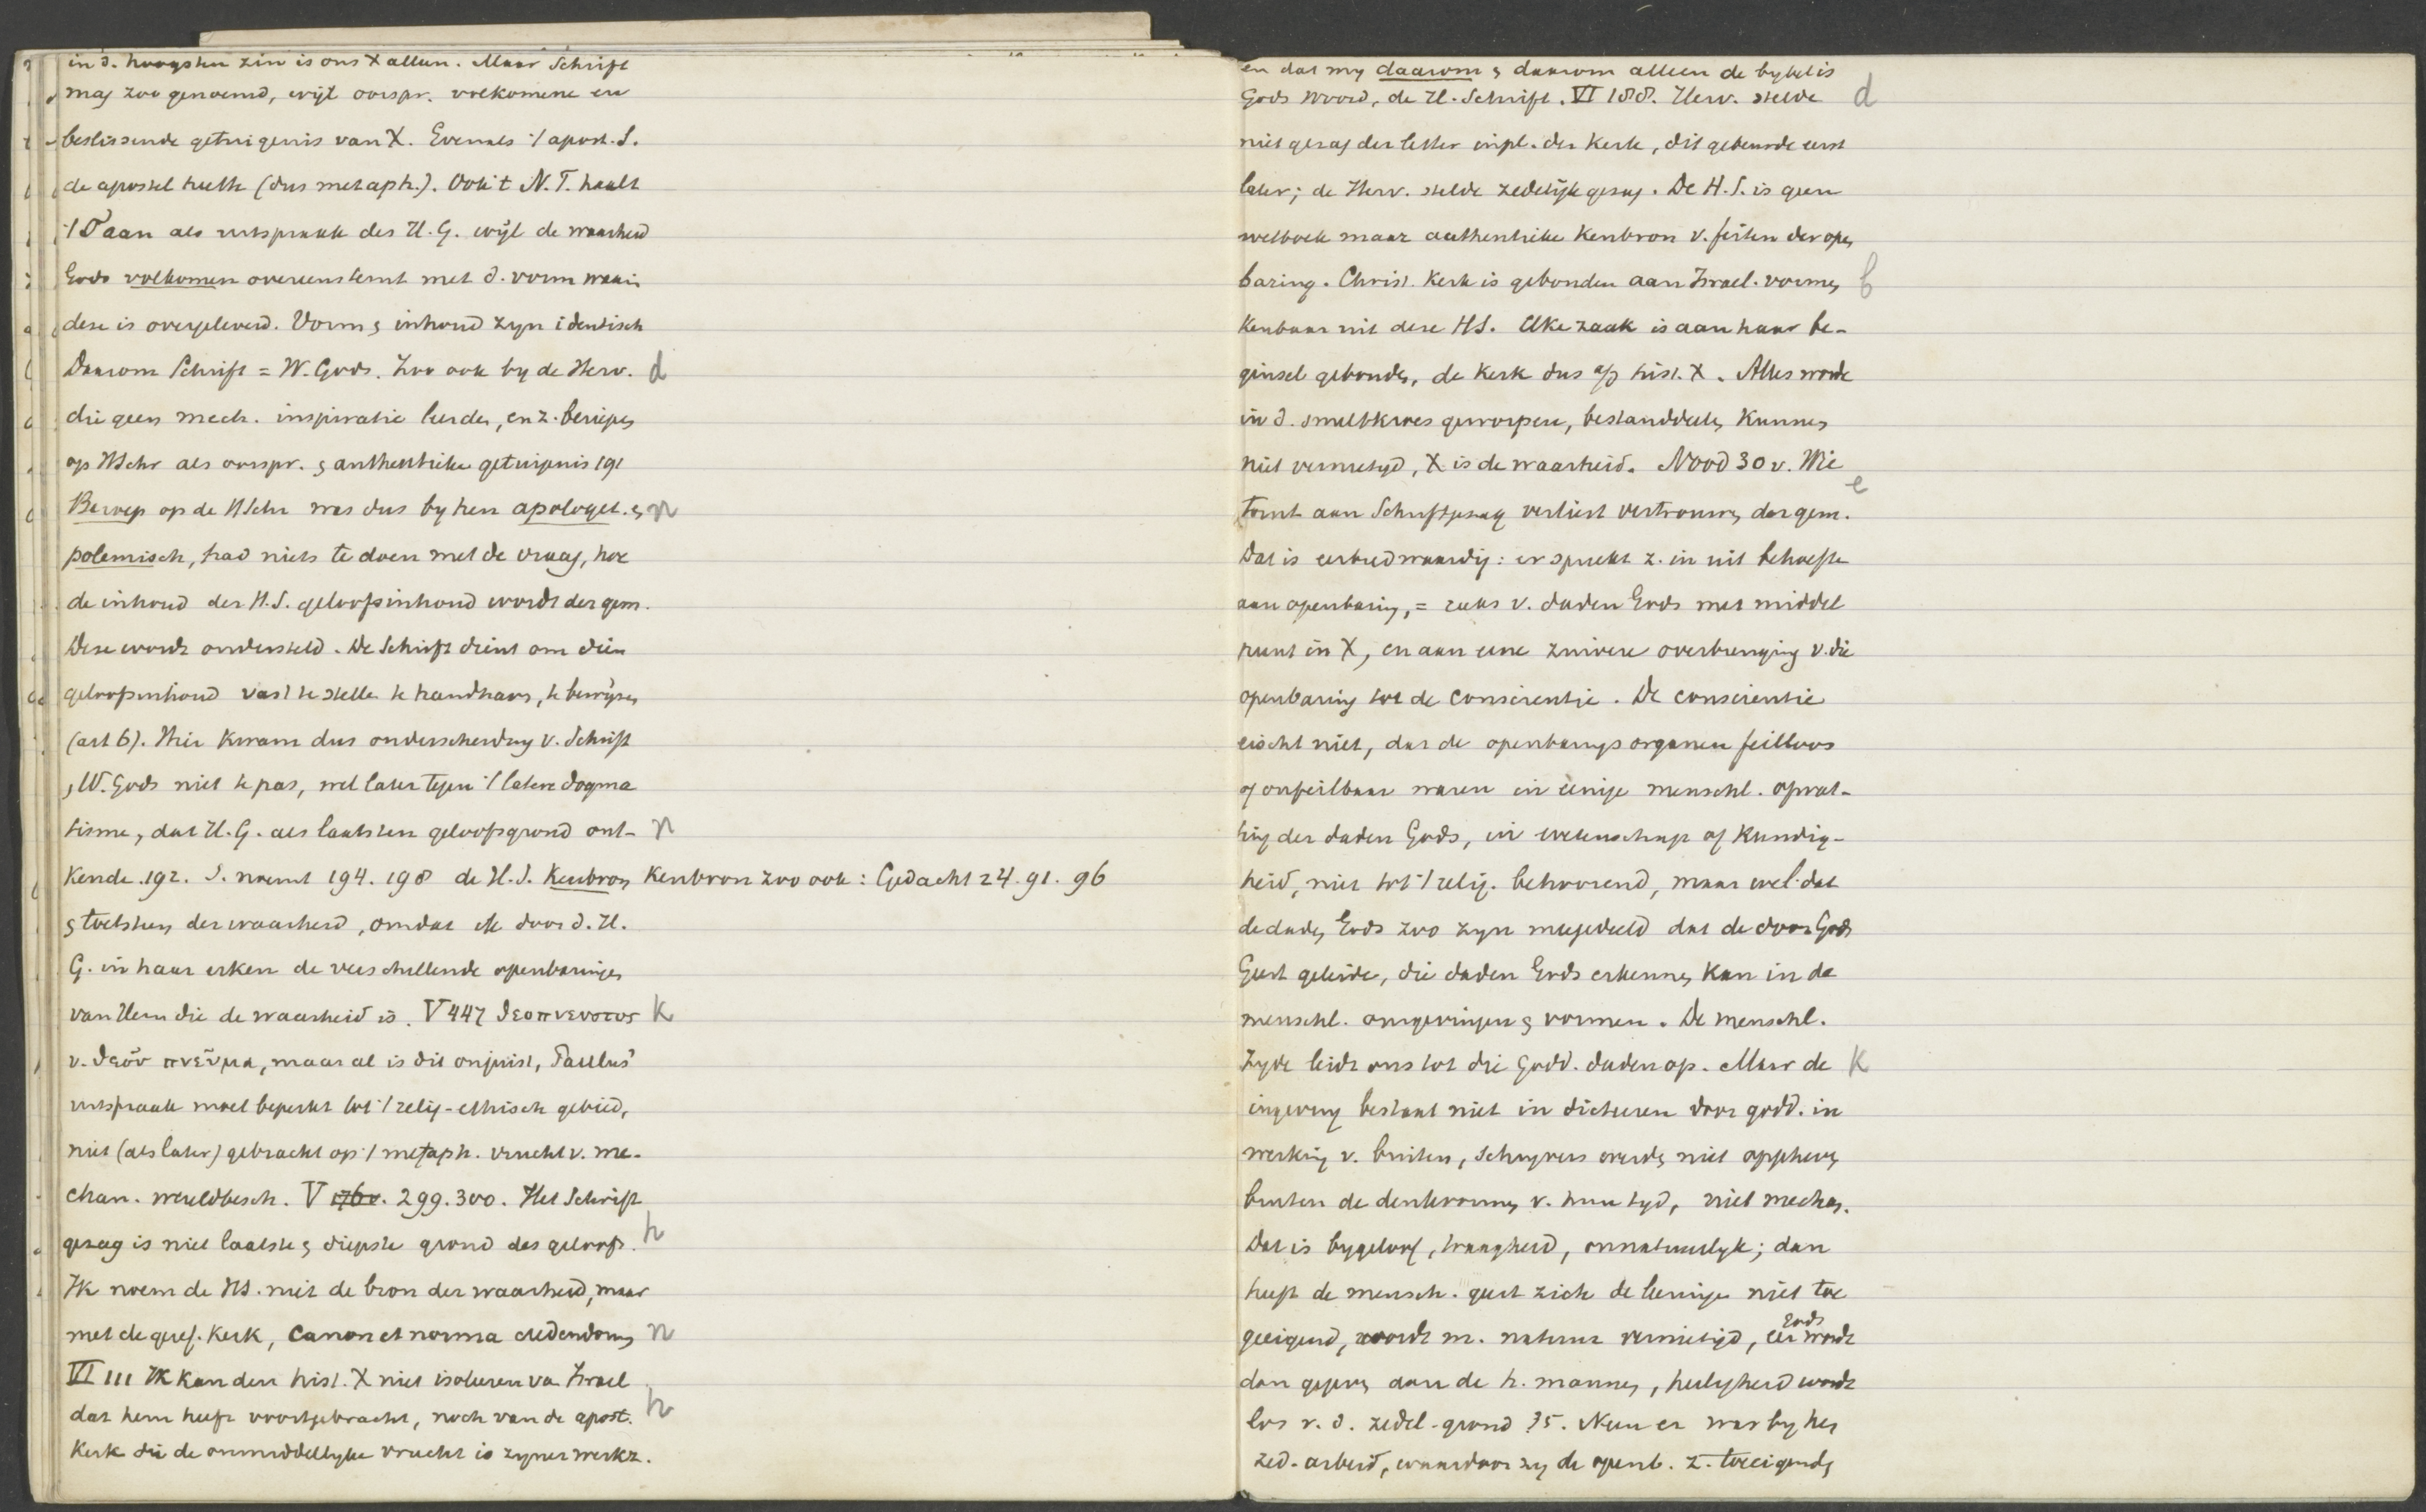 in d. hoogsten zin is ons X alleen. Maar Schrift
mag zoo genoemd, wijl oorspr. volkomene en
beslissende getuigenis van X. Evenals ·/ apost. S.
de apostel heette (dus metaph.). Ook ·t N.T. haalt
·/ O aan als uitspraak des H.G. wijl de waarheid
Gods volkomen overeenstemt met d. vorm waarin
deze is overgeleverd. Vorm & inhoud zyn identisch
Daarom Schrift = W. Gods. Zoo ook by de Herv. d
die geen mech. inspiratie leerden, en z. beriepen
op HSchr als oorspr. & authentieke getuigenis 191
Beroep op de HSchr was dus by hen apologet. & n
polemisch, had niets te doen met de vraag, hoe
de inhoud der H.S. geloofsinhoud wordt der gem.
Deze wordt ondersteld. De Schrift dient om dien
geloofsinhoud vast te stellen te handhaven, te bewijzen
(art 6). Hier kwam dus onderscheiding v. Schrift
& W. Gods niet te pas, wel later tegen ·/ latere dogma
tisme, dat H.G. als laatsten geloofsgrond ont- n
kende. 192. S. noemt 194. 198 de H.S. Kenbron Kenbron zoo ook: Gedacht 24. 91. 96
& toetssteen der waarheid, omdat ik door d. H.
G. in haar erken de verschillende openbaringen
van Hem die de waarheid is. V 447 θεοπνευστος k
v. θεοῦ πνεῦμα, maar al is dit onjuist, Paulus'
uitspraak moet beperkt tot ·/ relig-ethisch gebied,
niet (als later) gebracht op ·/ metaph. vrucht v. me-
chan. wereldbesch. V 299. 300. Het Schrift
gezag is niet laatste & diepste grond des geloofs. h
Ik noem de HS. niet de bron der waarheid, maar
met de geref. Kerk, Canon et norma credendorum n
VI 111 Ik kan den hist. X niet isoleeren van Israel
dat hem heeft voortgebracht, noch van de apost. h
Kerk die de onmiddellyke vrucht is zyner werkz.
en dat my daarom & daarom alleen de bybel is
Gods Woord, de H. Schrift. VI 188. Herv. stelde d
niet gezag der letter in pl. der Kerk, dit gebeurde eerst
later; de Herv. stelde zedelijk gezag. De H.S. is geen
wetboek maar authentieke Kenbron v. feiten der open
baring. Christ. Kerk is gebonden aan Israel. vormen b
Kenbaar uit deze HS. Elke zaak is aan haar be-
ginsel gebonden, de Kerk dus a/d hist. X. Alles worde
in d. smeltkroes geworpen, bestanddeelen kunnen
niet vernietigd, X is de waarheid. Nood 30 v. Wie e
tornt aan Schriftgezag verliest vertrouwen der gem.
Dat is eerbiedwaardig: er spreekt z. in uit behoefte
aan openbaring, = reeks v. daden Gods met middel
punt in X, en aan eene zuivere overbrenging v. die
openbaring tot de conscientie. De conscientie
eischt niet, dat de openbarings organen feilloos
of onfeilbaar waren in eenige menschl. opvat-
ting der daden Gods, in wetenschap of kundig-
heid, niet tot ·/ relig. behoorend, maar wel dat
de daden Gods zoo zyn meegedeeld dat de door Gods
Geest geleide, die daden Gods erkennen kan in de
menschl. omgevingen & vormen. De menschl.
zyde leidt ons tot die godd. daden op. Maar de k
ingeving bestaat niet in dicteeren door godd. in
werking v. buiten, schryvers werden niet opgeheven
buiten de denkvormen v. hun tyd, niet mechan.
Dat is bygeloof, traagheid, onnatuurlyk; dan
heeft de mensch. geest zich de leeringen niet toe
geeigend, wordt m. natuur vernietigd, Gods eer wordt
dan gegeven aan de h. mannen, heiligheid wordt
los v. d. zedel-grond 35. Neen er was by hen
zed. arbeid, waardoor zy de openb. z. toeeigenden